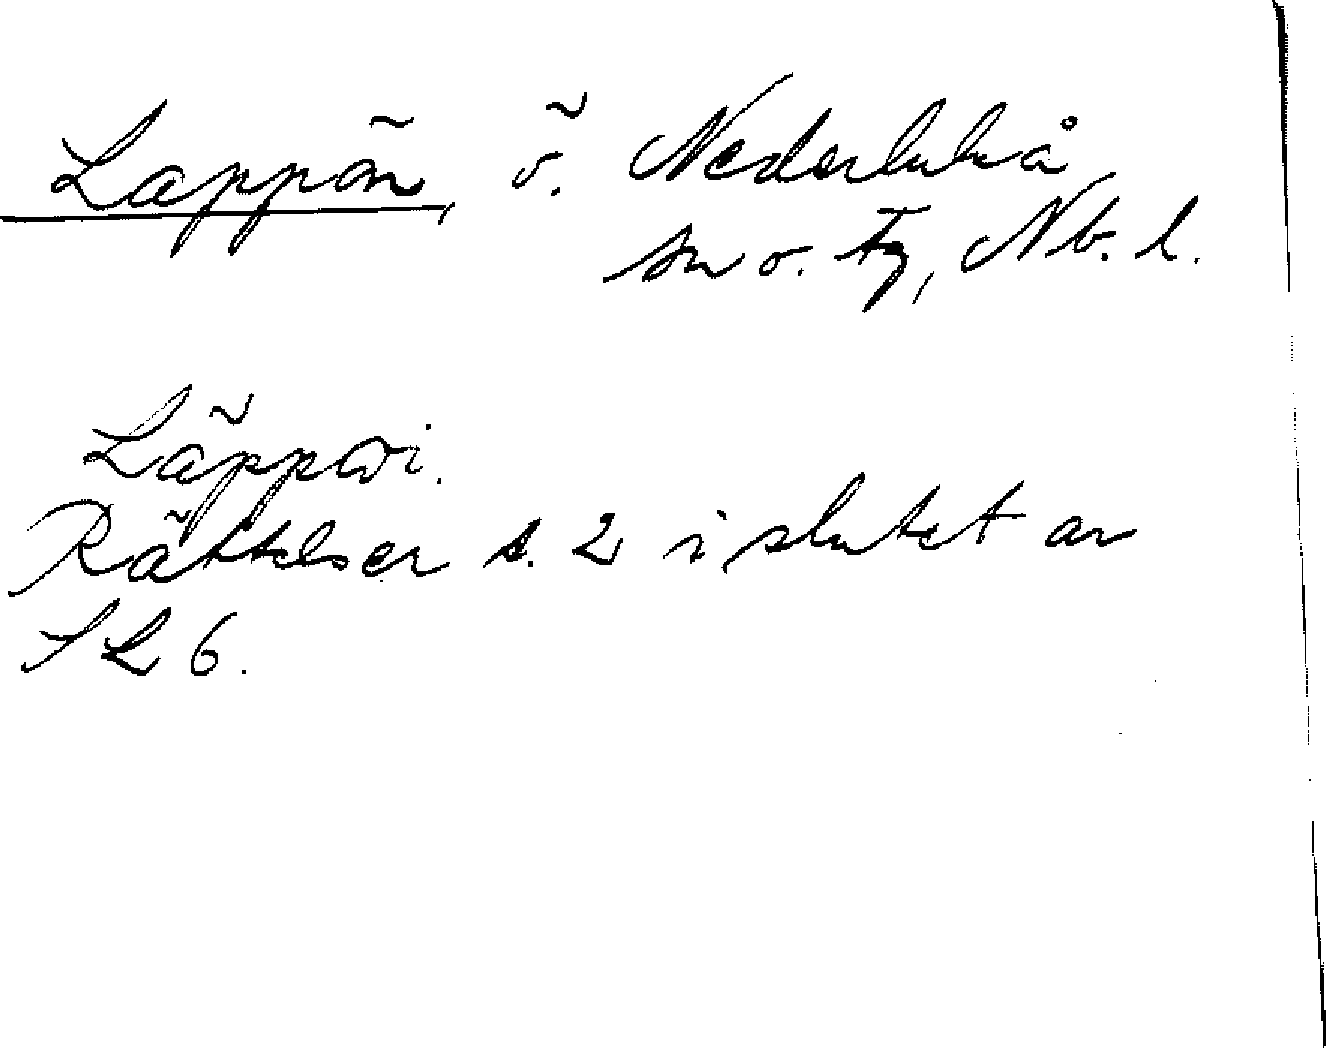 Lappön, ö. Nederluleå
sn o. tg, Nb. l.
Läppöi.
Rättelser s. 2 i slutet av
SL 6.